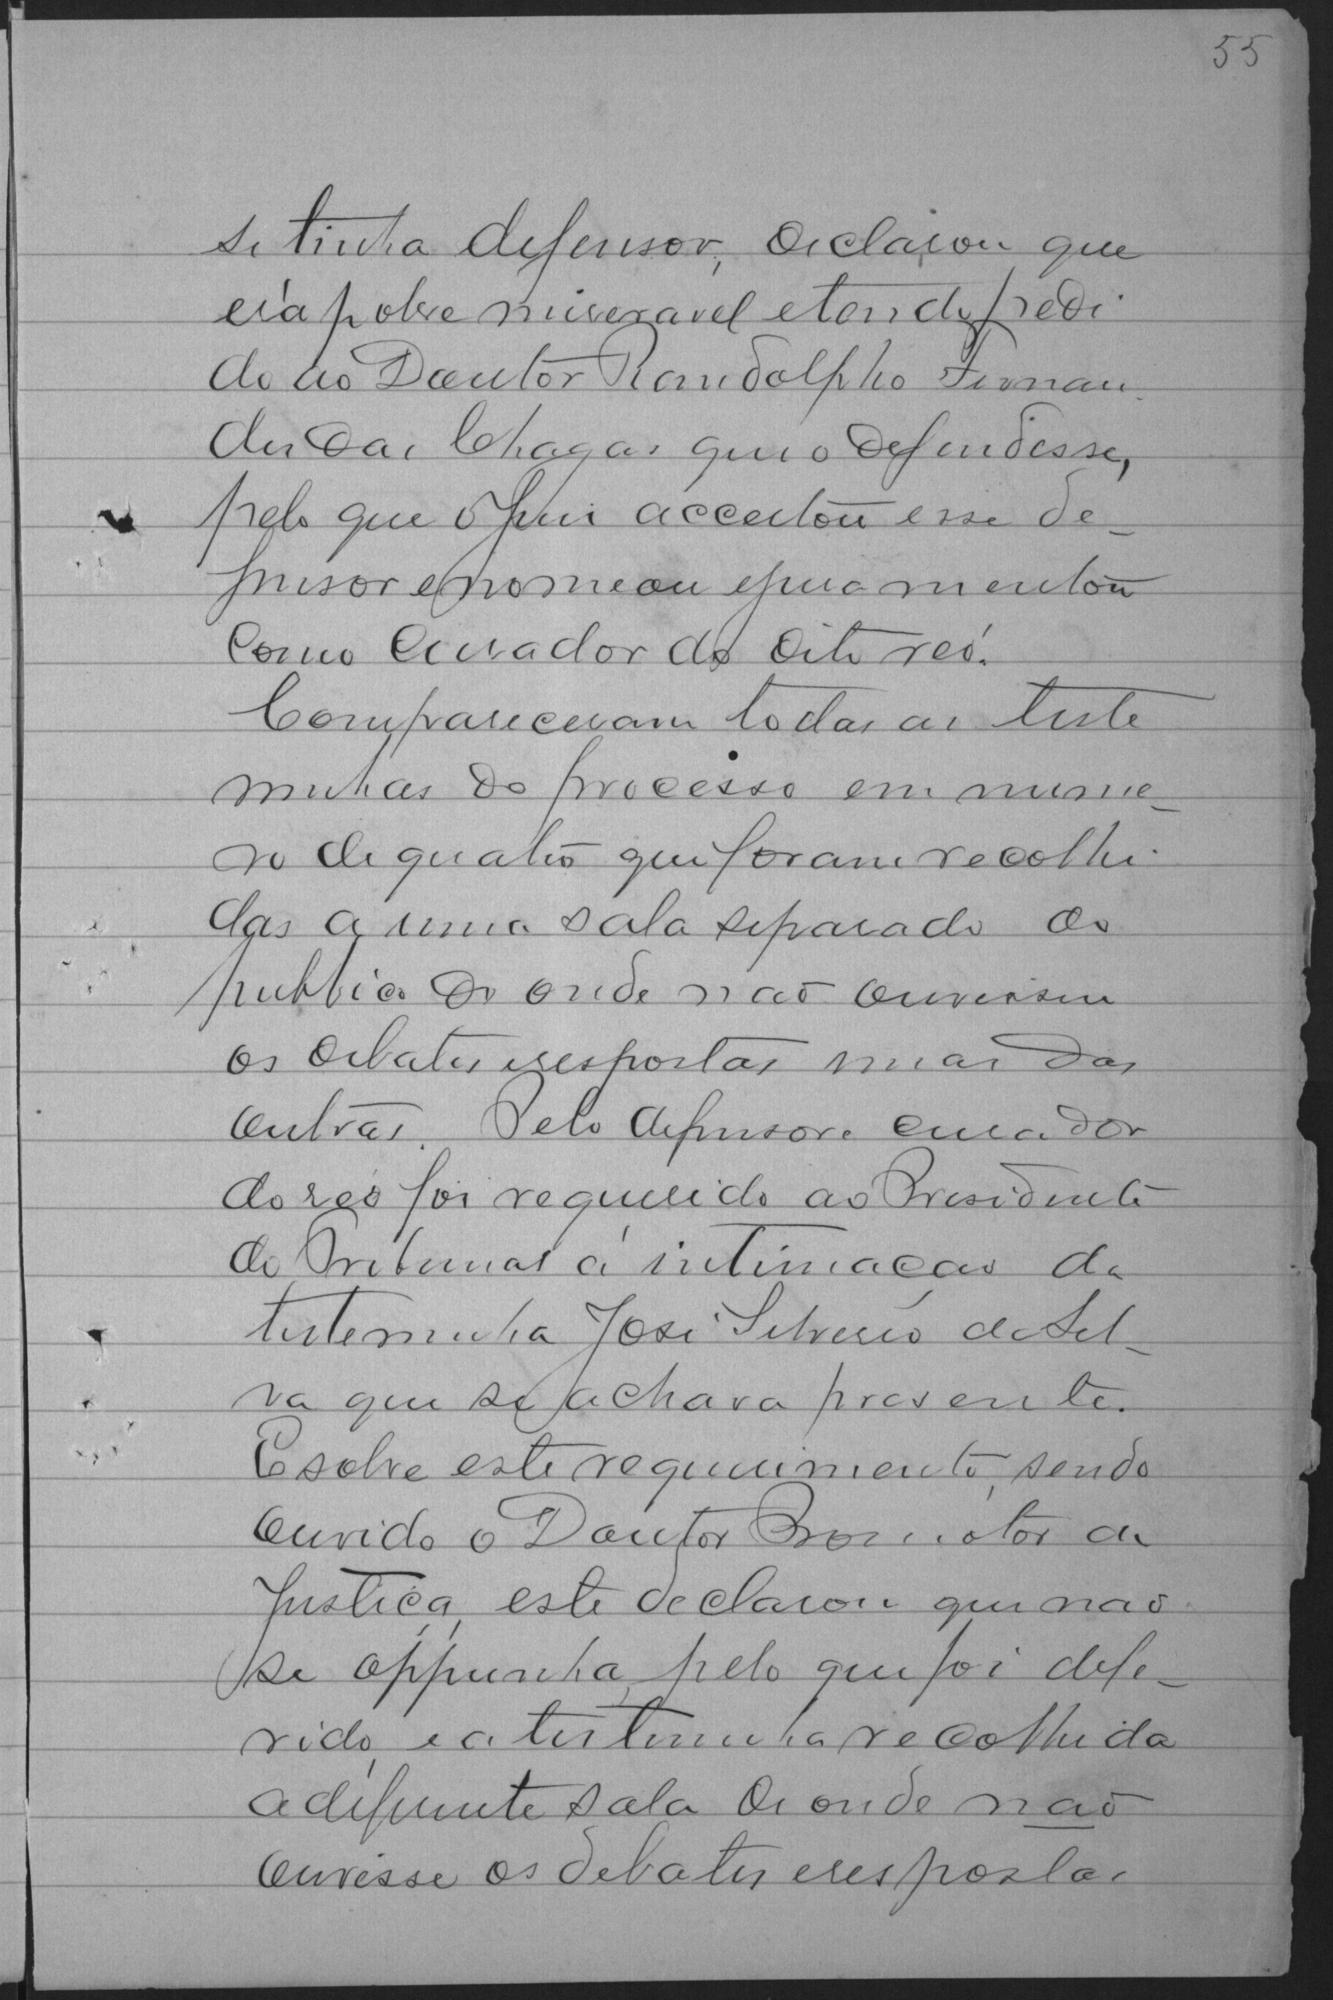 55
se tinha defensor, declarou que
era pobre miseravel e tendo pedi
do ao Doutor Randolpho Fernan
des das Chagas que o defendesse,
pelo que o Juiz acceitou esse de-
fensor e nomeou e juramentou
como curador do dito reó.
Compareceram todas as teste
munhas do processo em nume-
ro de quatro que foram recolhi
das a uma sala separado do
publico de onde não ouvissem
os debates e respostas umas das
outras. Pelo defensor e curador
do reó foi requerido ao Presidente
do Tribunal á intimação da
testemunha José Silverio da Sil-
va que se achava presente.
E sobre este requerimento, sendo
ouvido o Doutor Promotor da
Justiça, este declarou que não
se oppunha, pelo que foi defe-
rido, e a testemunha recolhida
a diferente sala de onde não
ouvisse os debates e respostas